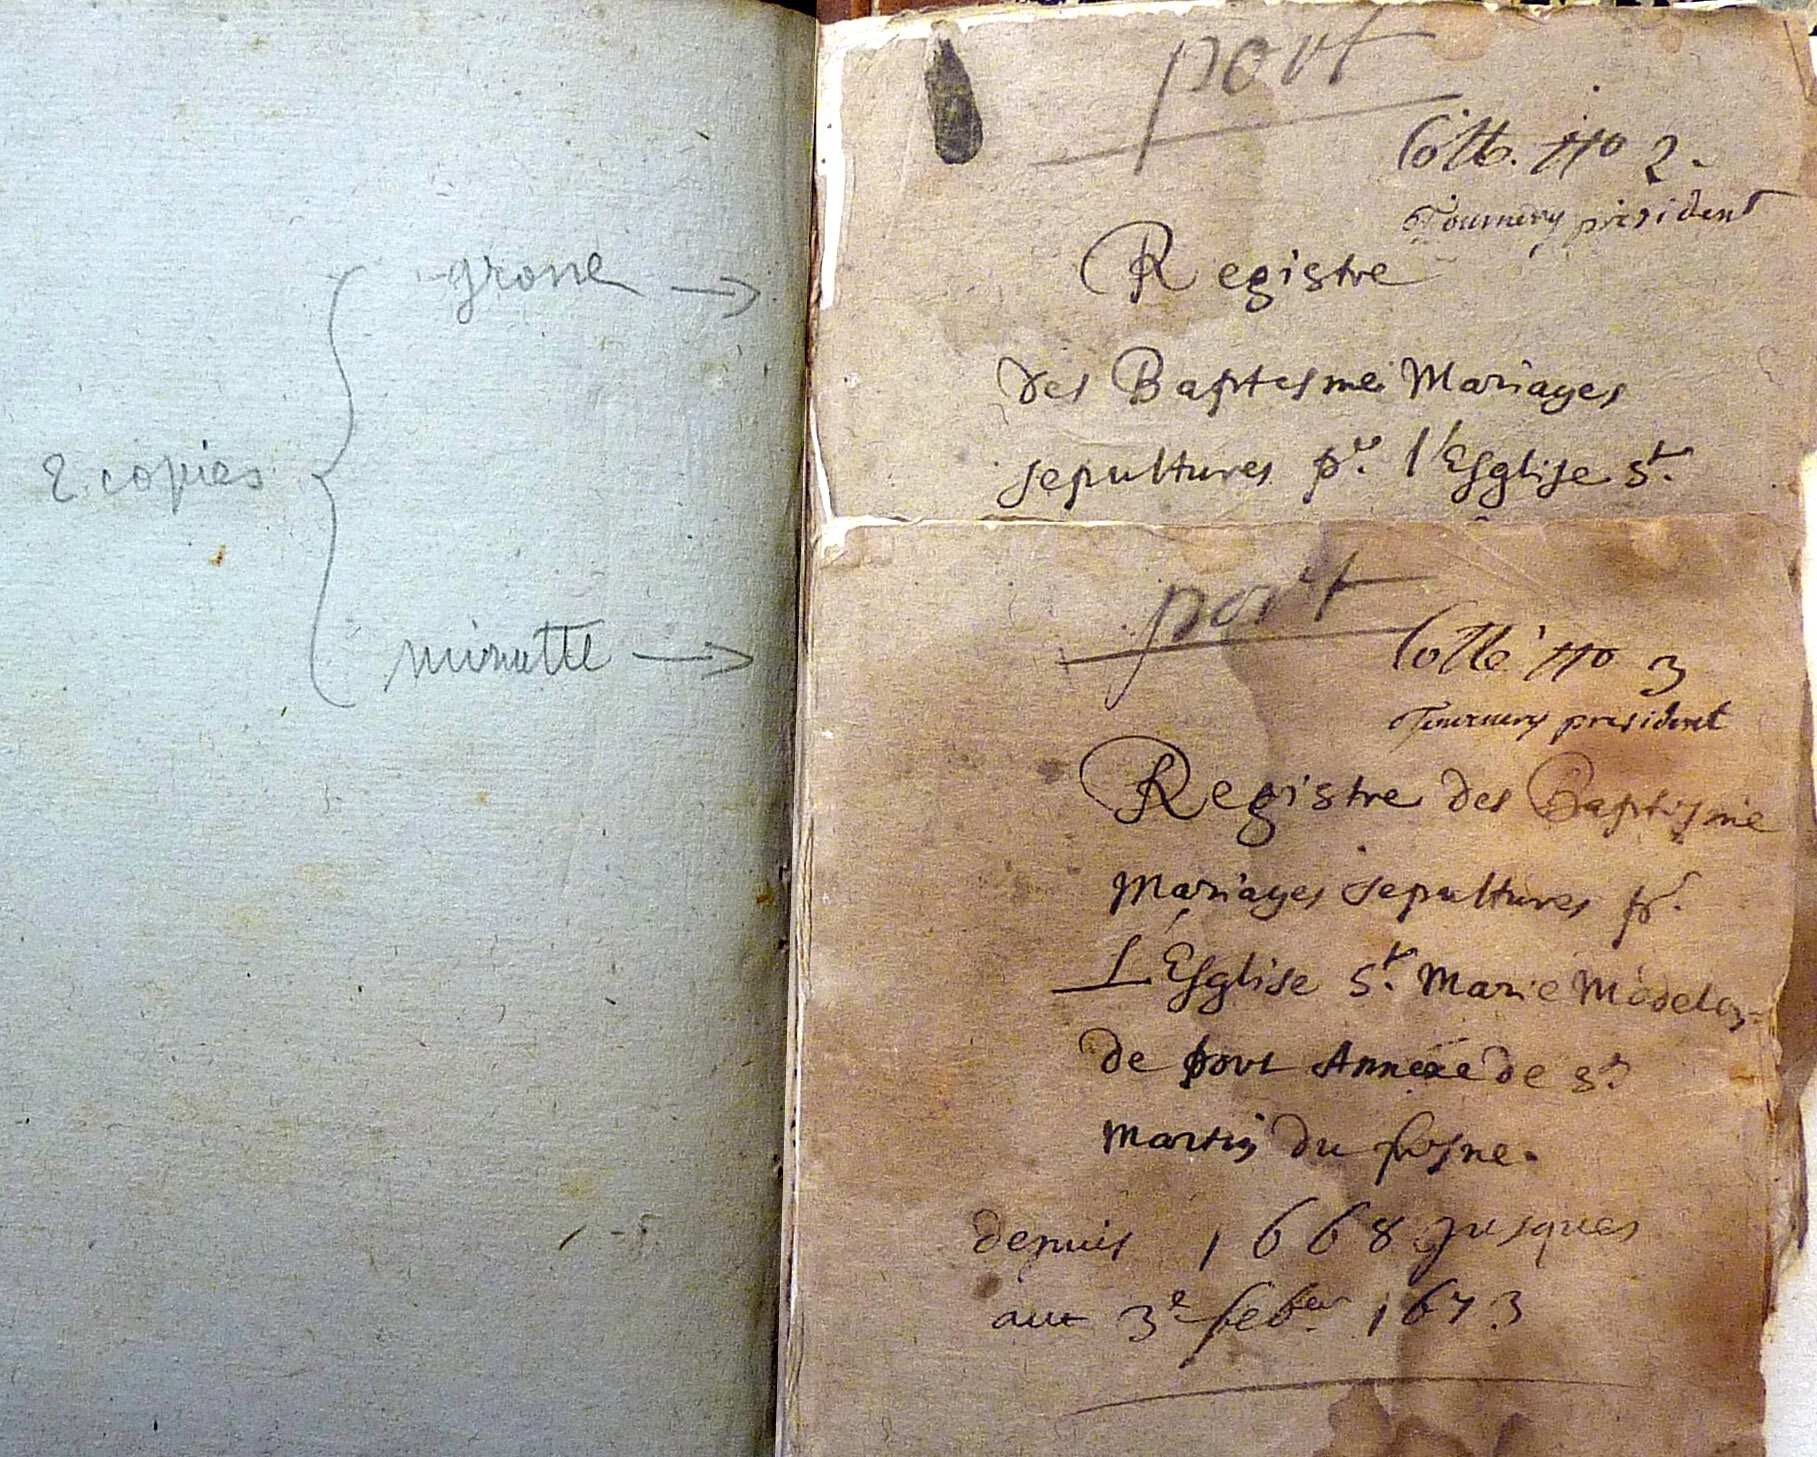 2 copies
grosse →
minutte →
port
Cotté No 2.
Tournery président
Registre
des Baptesme Mariages
sepultures pr. l'Esglise St.
port
Cotté No 3
Tournery president
Registre des Baptesme
Mariages sepultures pr.
L'Esglise St. Marie Madelen
de port Annexe de St.
Martin du fresne.
depuis 1668 jusques
aux 3e feber. 1673